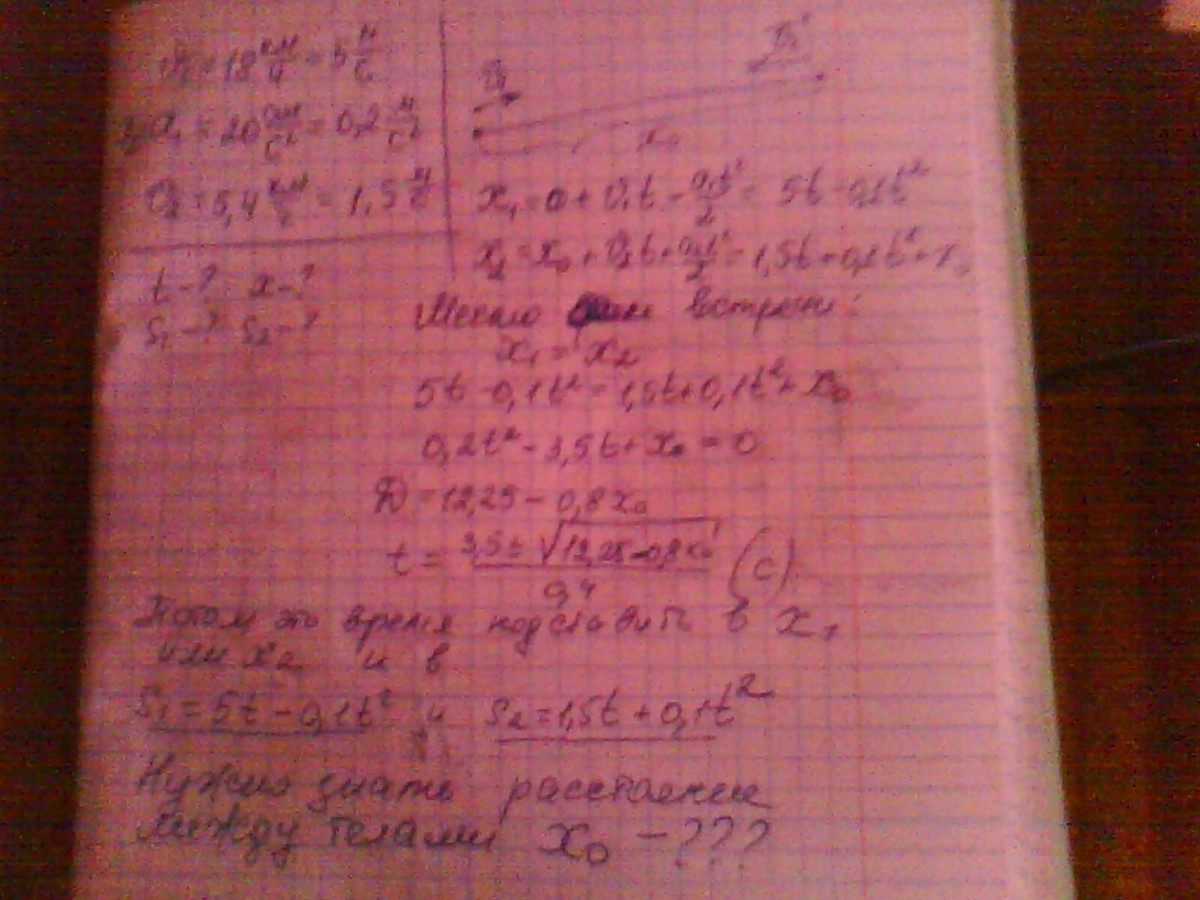 υ₁ = 18 км/ч = 5 м/с
a₁ = 20 см/с² = 0,2 м/с²
υ₂ = 5,4 км/ч = 1,5 м/с
t - ? x - ?
S₁ - ? S₂ - ?
x₀
x₁ = 0 + υ₁t - a₁t²/2 = 5t - 0,1t²
x₂ = x₀ + υ₂t + a₂t²/2 = 1,5t + 0,1t² + x₀
Место встречи:
x₁ = x₂
5t - 0,1t² = 1,5t + 0,1t² + x₀
0,2t² - 3,5t + x₀ = 0
D = 12,25 - 0,8x₀
t = (3,5 ± √(12,25 - 0,8x₀))/0,4 (с)
Потом это время подставить в x₁
или x₂ и в
S₁ = 5t - 0,1t² и S₂ = 1,5t + 0,1t²
Нужно знать расстояние
между телами x₀ - ???